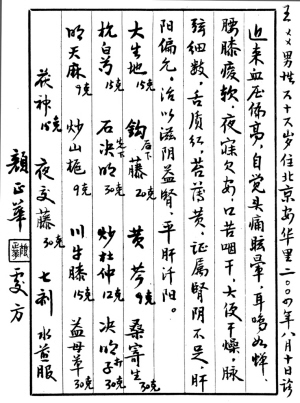 王××男性五十六岁住北京安华里二〇〇四年八月十日诊
近来血压偏高，自觉头痛眩晕，耳哆如蝉，
腰膝痠软，夜寐欠安，口苦咽干，大便干燥，脉
弦细数，舌质红，苔薄黄。证属肾阴不足，肝
阳偏亢。治以滋阴益肾，平肝泻阳。
大生地15克 钩藤后下20克 黄芩9克 桑寄生30克
杭白芍15克 石决明先下30克 炒杜仲12克 决明子打30克
明天麻9克 炒山栀9克 川牛膝15克 益母草30克
茯神15克 夜交藤30克 七剂 水煎服
颜正华 处方